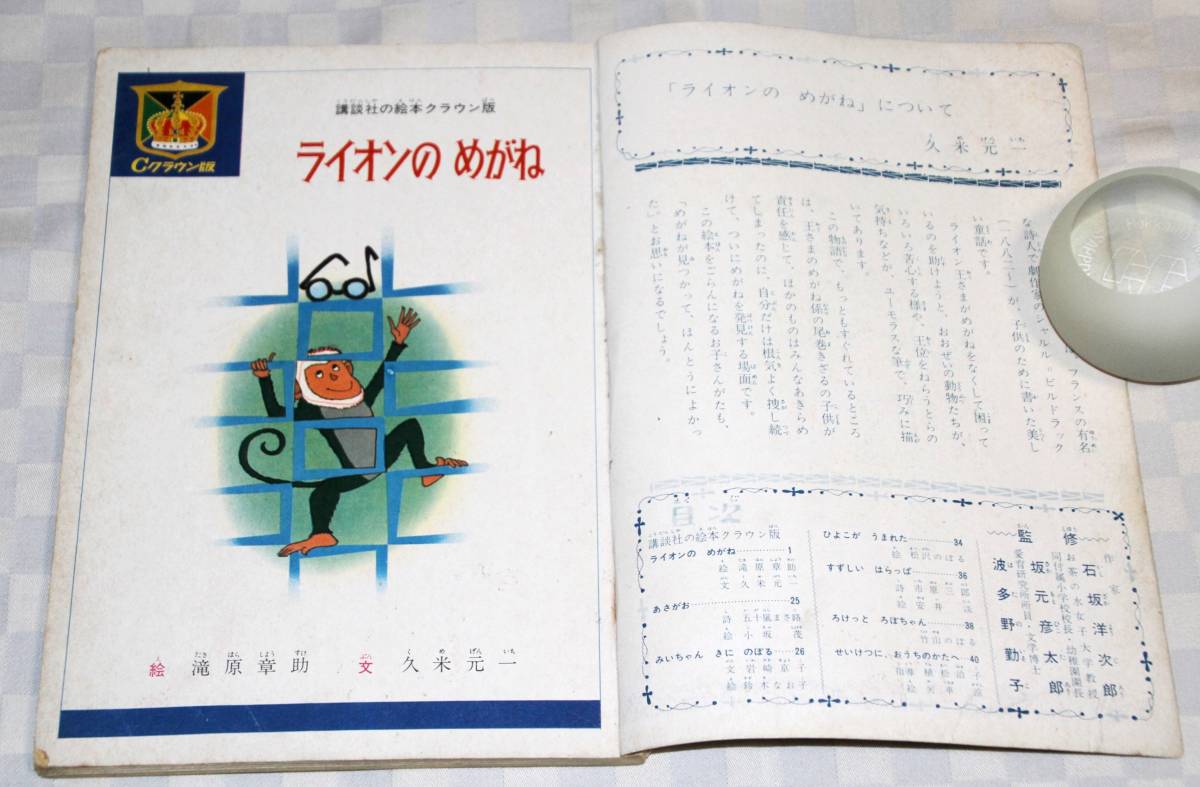 Cクラウン版
講談社の絵本クラウン版
ライオンの めがね
絵 滝原章助 文 久米元一
たき はら しょう すけ
く め げん いち
「ライオンの めがね」について
久米元一
フランスの有名
な詩人で劇作家のシャルル=ビルドラック
(一八八二〜)が、子供のために書いた美し
い童話です。
ライオン王さまがめがねをなくして困って
いるのを助けようと、おおぜいの動物たちが、
いろいろ苦心する様や、王位をねらうとらの
気持ちなどが、ユーモラスな筆で、巧みに描
いてあります。
この物語で、もっともすぐれているところ
は、王さまのめがね係の尾巻きざるの子供が
責任を感じて、ほかのものはみんなあきらめ
てしまったのに、自分だけは根気よく捜し続
けて、ついにめがねを発見する場面です。
この絵本をごらんになるお子さんがたも、
「めがねが見つかって、ほんとうによかっ
た。」とお思いになるでしょう。
目次
講談社の絵本クラウン版
ライオンの めがね 1
絵 滝原章助
文 久米元一
あさがお 25
詩 五十嵐まさ路
絵 小坂 茂
みいちゃん きに のぼる 26
文 岩崎京子
絵 鈴木なお
ひよこが うまれた 34
絵 松沢のぼる
すずしい はらっぱ 36
詩 市原三郎
ろけっと ろぼちゃん 38
竹山のぼる
せいけつに、おうちのかたへ 40
監修
作家 石坂洋次郎
お茶の水女子大学教授
同付属小学校校長・幼稚園園長
坂元彦太郎
愛育研究所所員・文学博士
波多野勤子